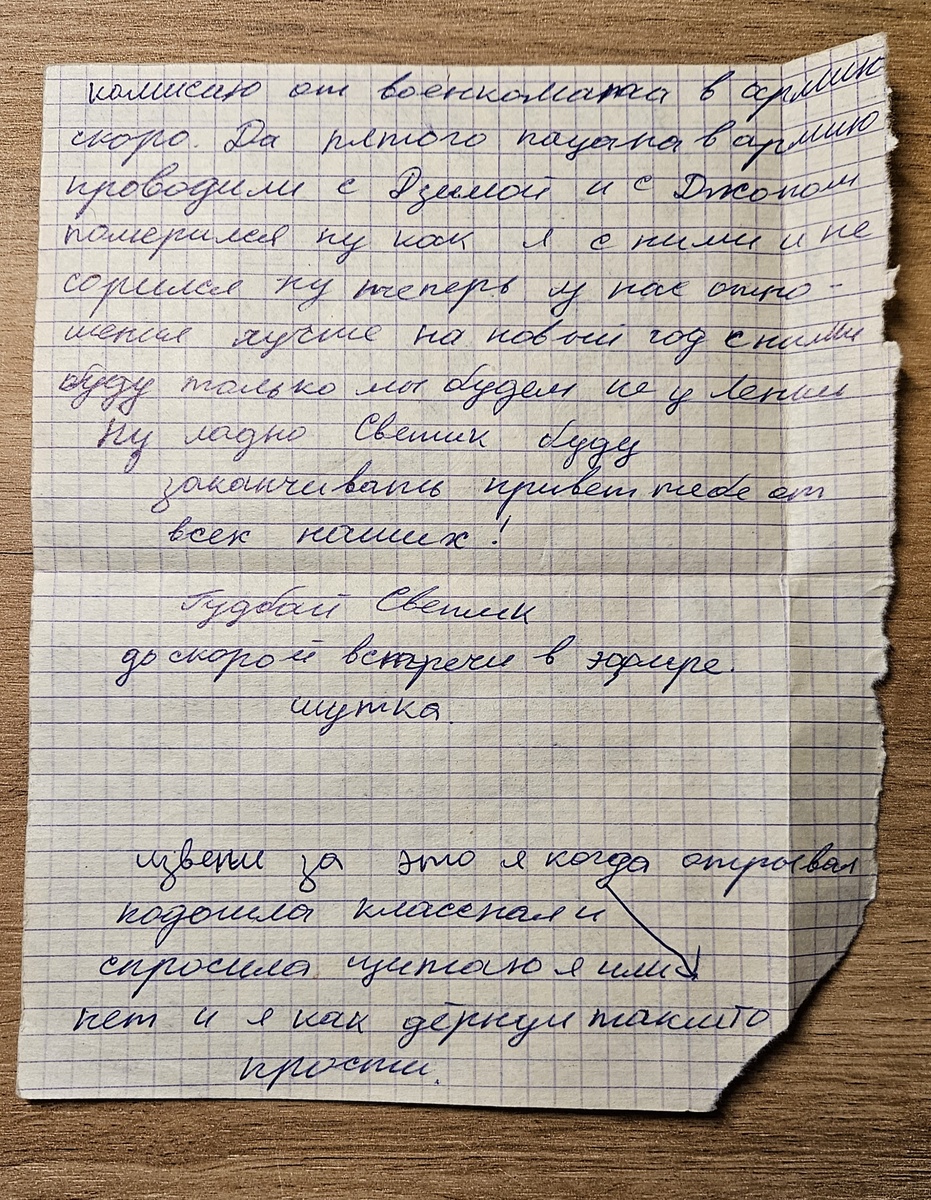 комисаю от военкомата в армию
скоро. Да пятого пацана в армию
проводили с Дзимой и с Джопом
померился ну как я с ними и не
сорился ну теперь у нас отно-
шения лучше на новый год с ними
буду только мы будем не у Лении
Ну ладно Светик буду
заканчивать привет тебе от
всех наших!
Гудбай Светик
до скорой встречи в эфире.
шутка.
извени за это я когда отрывал
подошла классная и
спросила читаю я или
нет и я как дёрнул так што
прости.